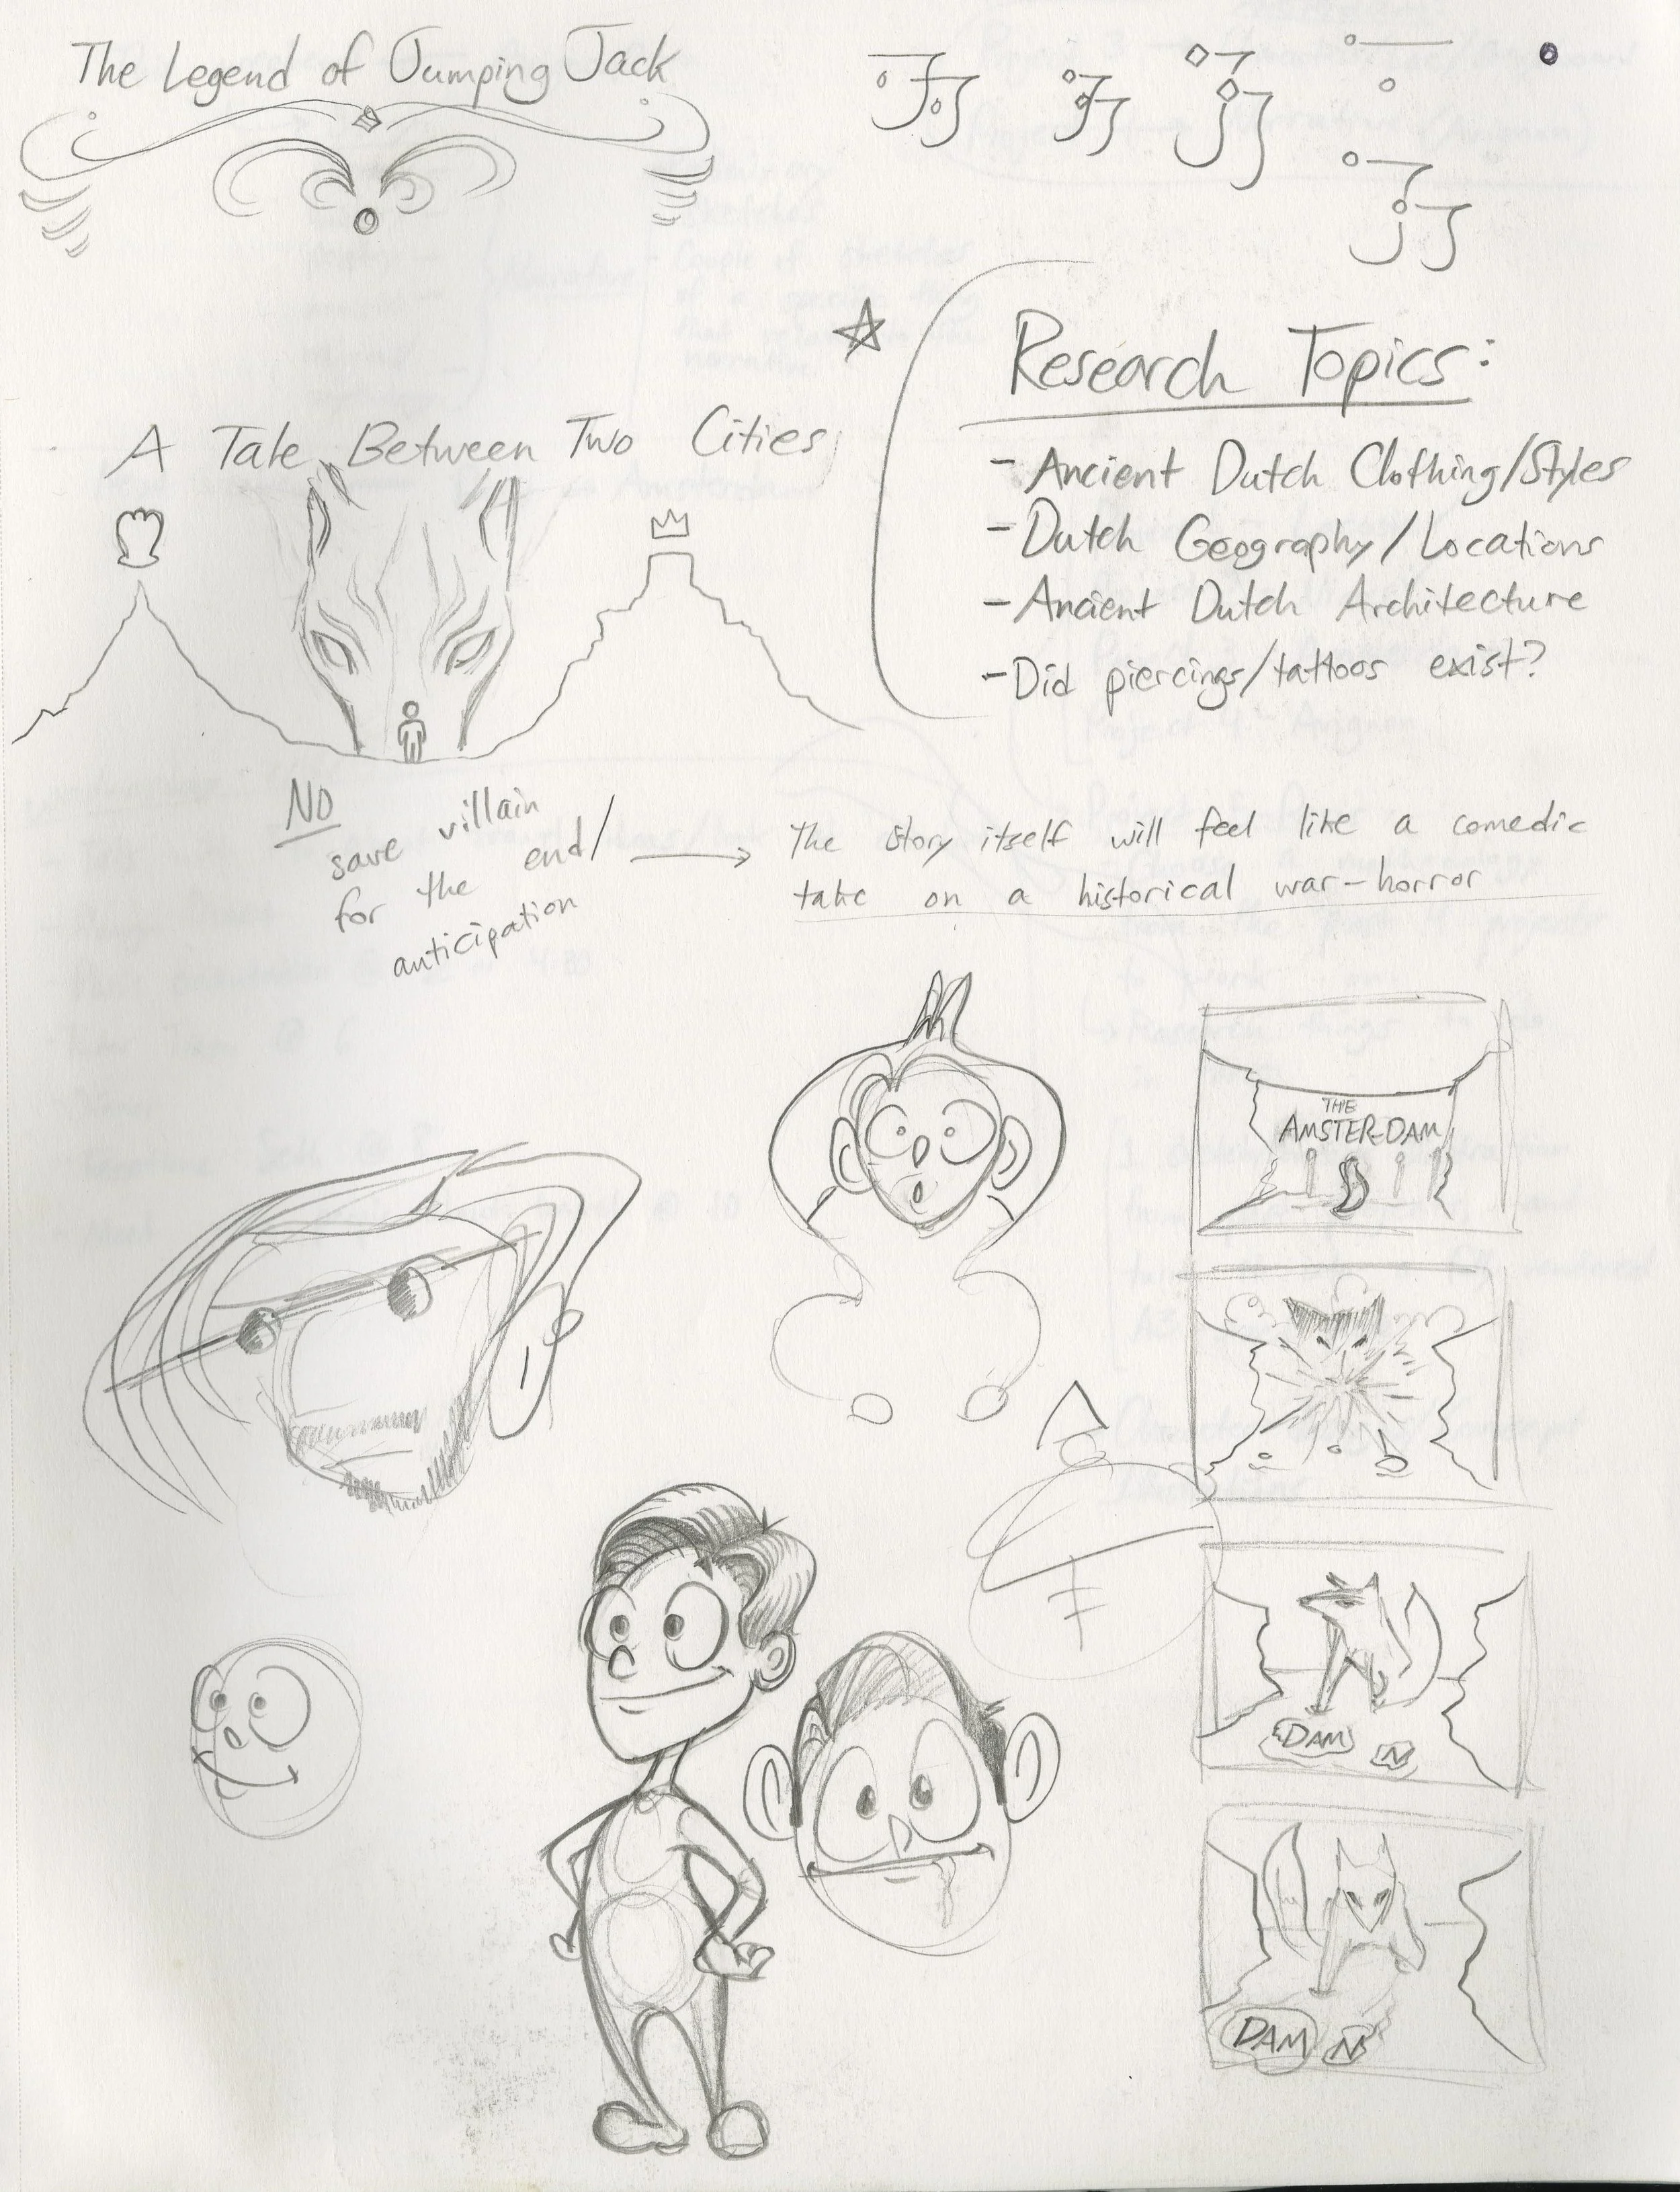 The Legend of Jumping Jack
A Tale Between Two Cities
Research Topics:
- Ancient Dutch Clothing/Styles
- Dutch Geography/Locations
- Ancient Dutch Architecture
- Did piercings/tattoos exist?
NO
save villain
for the end/
anticipation
The story itself will feel like a comedic
take on a historical war-horror
THE
AMSTER-DAM
DAM N
DAM N